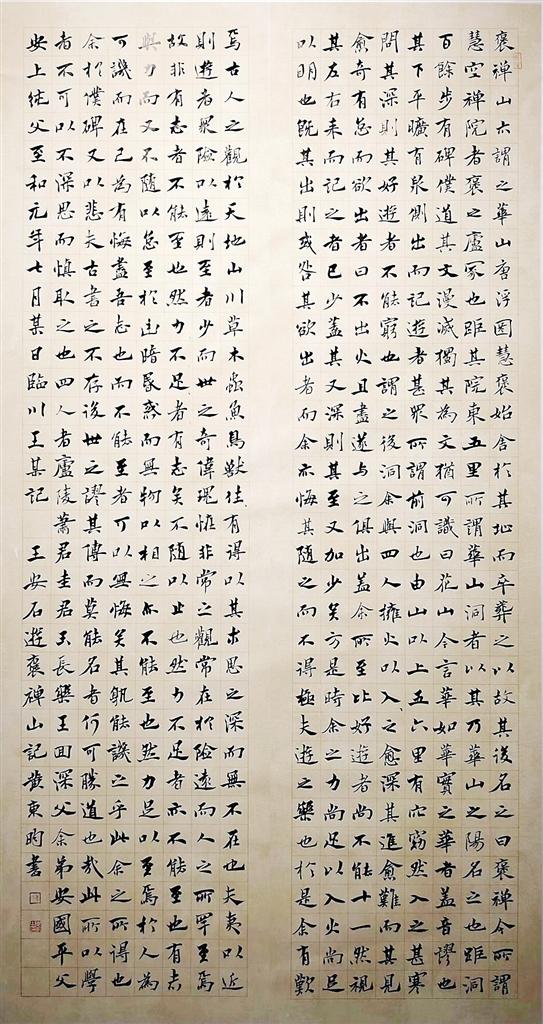 褒禪山亦謂之華山唐浮圖慧褒始舍於其址而卒葬之以故其後名之曰褒禪今所謂
慧空禪院者褒之廬冢也距其院東五里所謂華山洞者以其乃華山之陽名之也距洞
百餘步有碑僕道其文漫滅獨其為文猶可識曰花山今言華如華實之華者蓋音謬也
其下平曠有泉側出而記遊者甚眾所謂前洞也由山以上五六里有穴窈然入之甚寒
問其深則其好遊者不能窮也謂之後洞余與四人擁火以入之愈深其進愈難而其見
愈奇有怠而欲出者曰不出火且盡遂與之俱出蓋余所至比好遊者尚不能十一然視
其左右來而記之者已少蓋其又深則其至又加少矣方是時余之力尚足以入火尚足
以明也既其出則或咎其欲出者而余亦悔其隨之而不得極夫遊之樂也於是余有歎
焉古人之觀於天地山川草木蟲魚鳥獸往有得以其求思之深而無不在也夫夷以近
則遊者眾險以遠則至者少而世之奇偉瑰怪非常之觀常在於險遠而人之所罕至焉
故非有志者不能至也然力不足者有志矣不隨以止也然力不足者亦不能至也有志
與力而又不隨以怠至於幽暗昏惑而無物以相之亦不能至也然力足以至焉於人為
可譏而在己為有悔盡吾志也而不能至者可以無悔矣其孰能譏之乎此余之所得也
余於僕碑又以悲夫古書之不存後世之謬其傳而莫能名者何可勝道也哉此所以學
者不可以不深思而慎取之也四人者廬陵蕭君圭君玉長樂王回深父余弟安國平父
安上純父至和元年七月某日臨川王某記 王安石遊褒禪山記黃東昀書